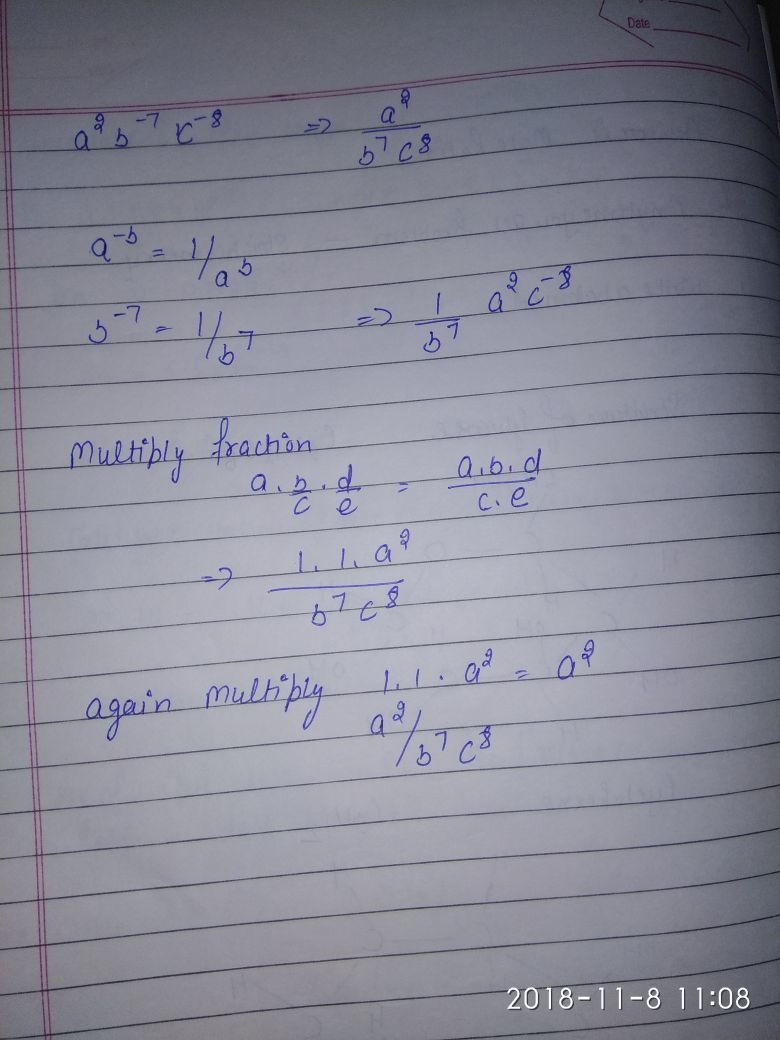 Date
a² b⁻⁷ c⁻⁸ => a²/b⁷ c⁸
a⁻ᵇ = 1/aᵇ
b⁻⁷ = 1/b⁷ => 1/b⁷ a² c⁻⁸
Multiply fraction
a . b/c . d/e = a.b.d/c.e
=> 1. 1. a²/b⁷ c⁸
again multiply 1.1 . a² = a²
a²/b⁷ c⁸
2018-11-8 11:08